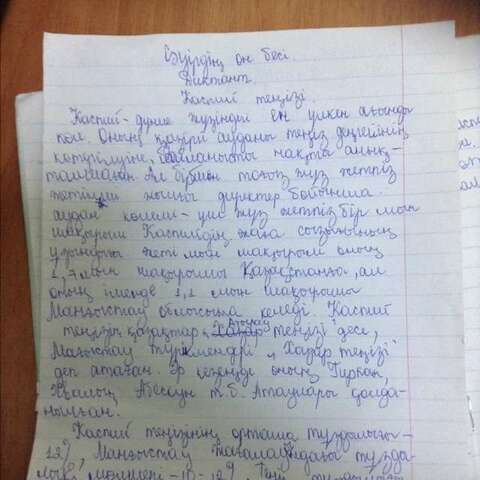 Сәуірдің он бесі.
Диктант.
Каспий теңізі.
Каспий - дүние жүзіндегі ең үлкен ағынды
көл. Оның қазіргі ауданы теңіз деңгейінің
көтерілуіне байланысты нақты анық-
талмаған. Ал бір мың тоғыз жүз жетпіс
жетінші жылғы деректер бойынша
аудан көлемі - үш жүз жетпіс бір мың
шақырым Каспийдің жаға сызығының
ұзындығы жеті мың шақырым оның
1,7 мың шақырымы Қазақстанға, ал
оның ішінде 1,1 мың шақырымы
Маңғыстау облысына келеді. Каспий
теңізін қазақтар, Атырау теңізі десе,
Маңғыстау түрікмендері "Хазар теңізі"
деп атаған. Әр кезеңде оның Гиркан,
Хвалын, Абескун т.б. Атаулары қолда-
нылған.
Каспий теңізінің орташа тұздылығы -
12%, Маңғыстау тұзда-